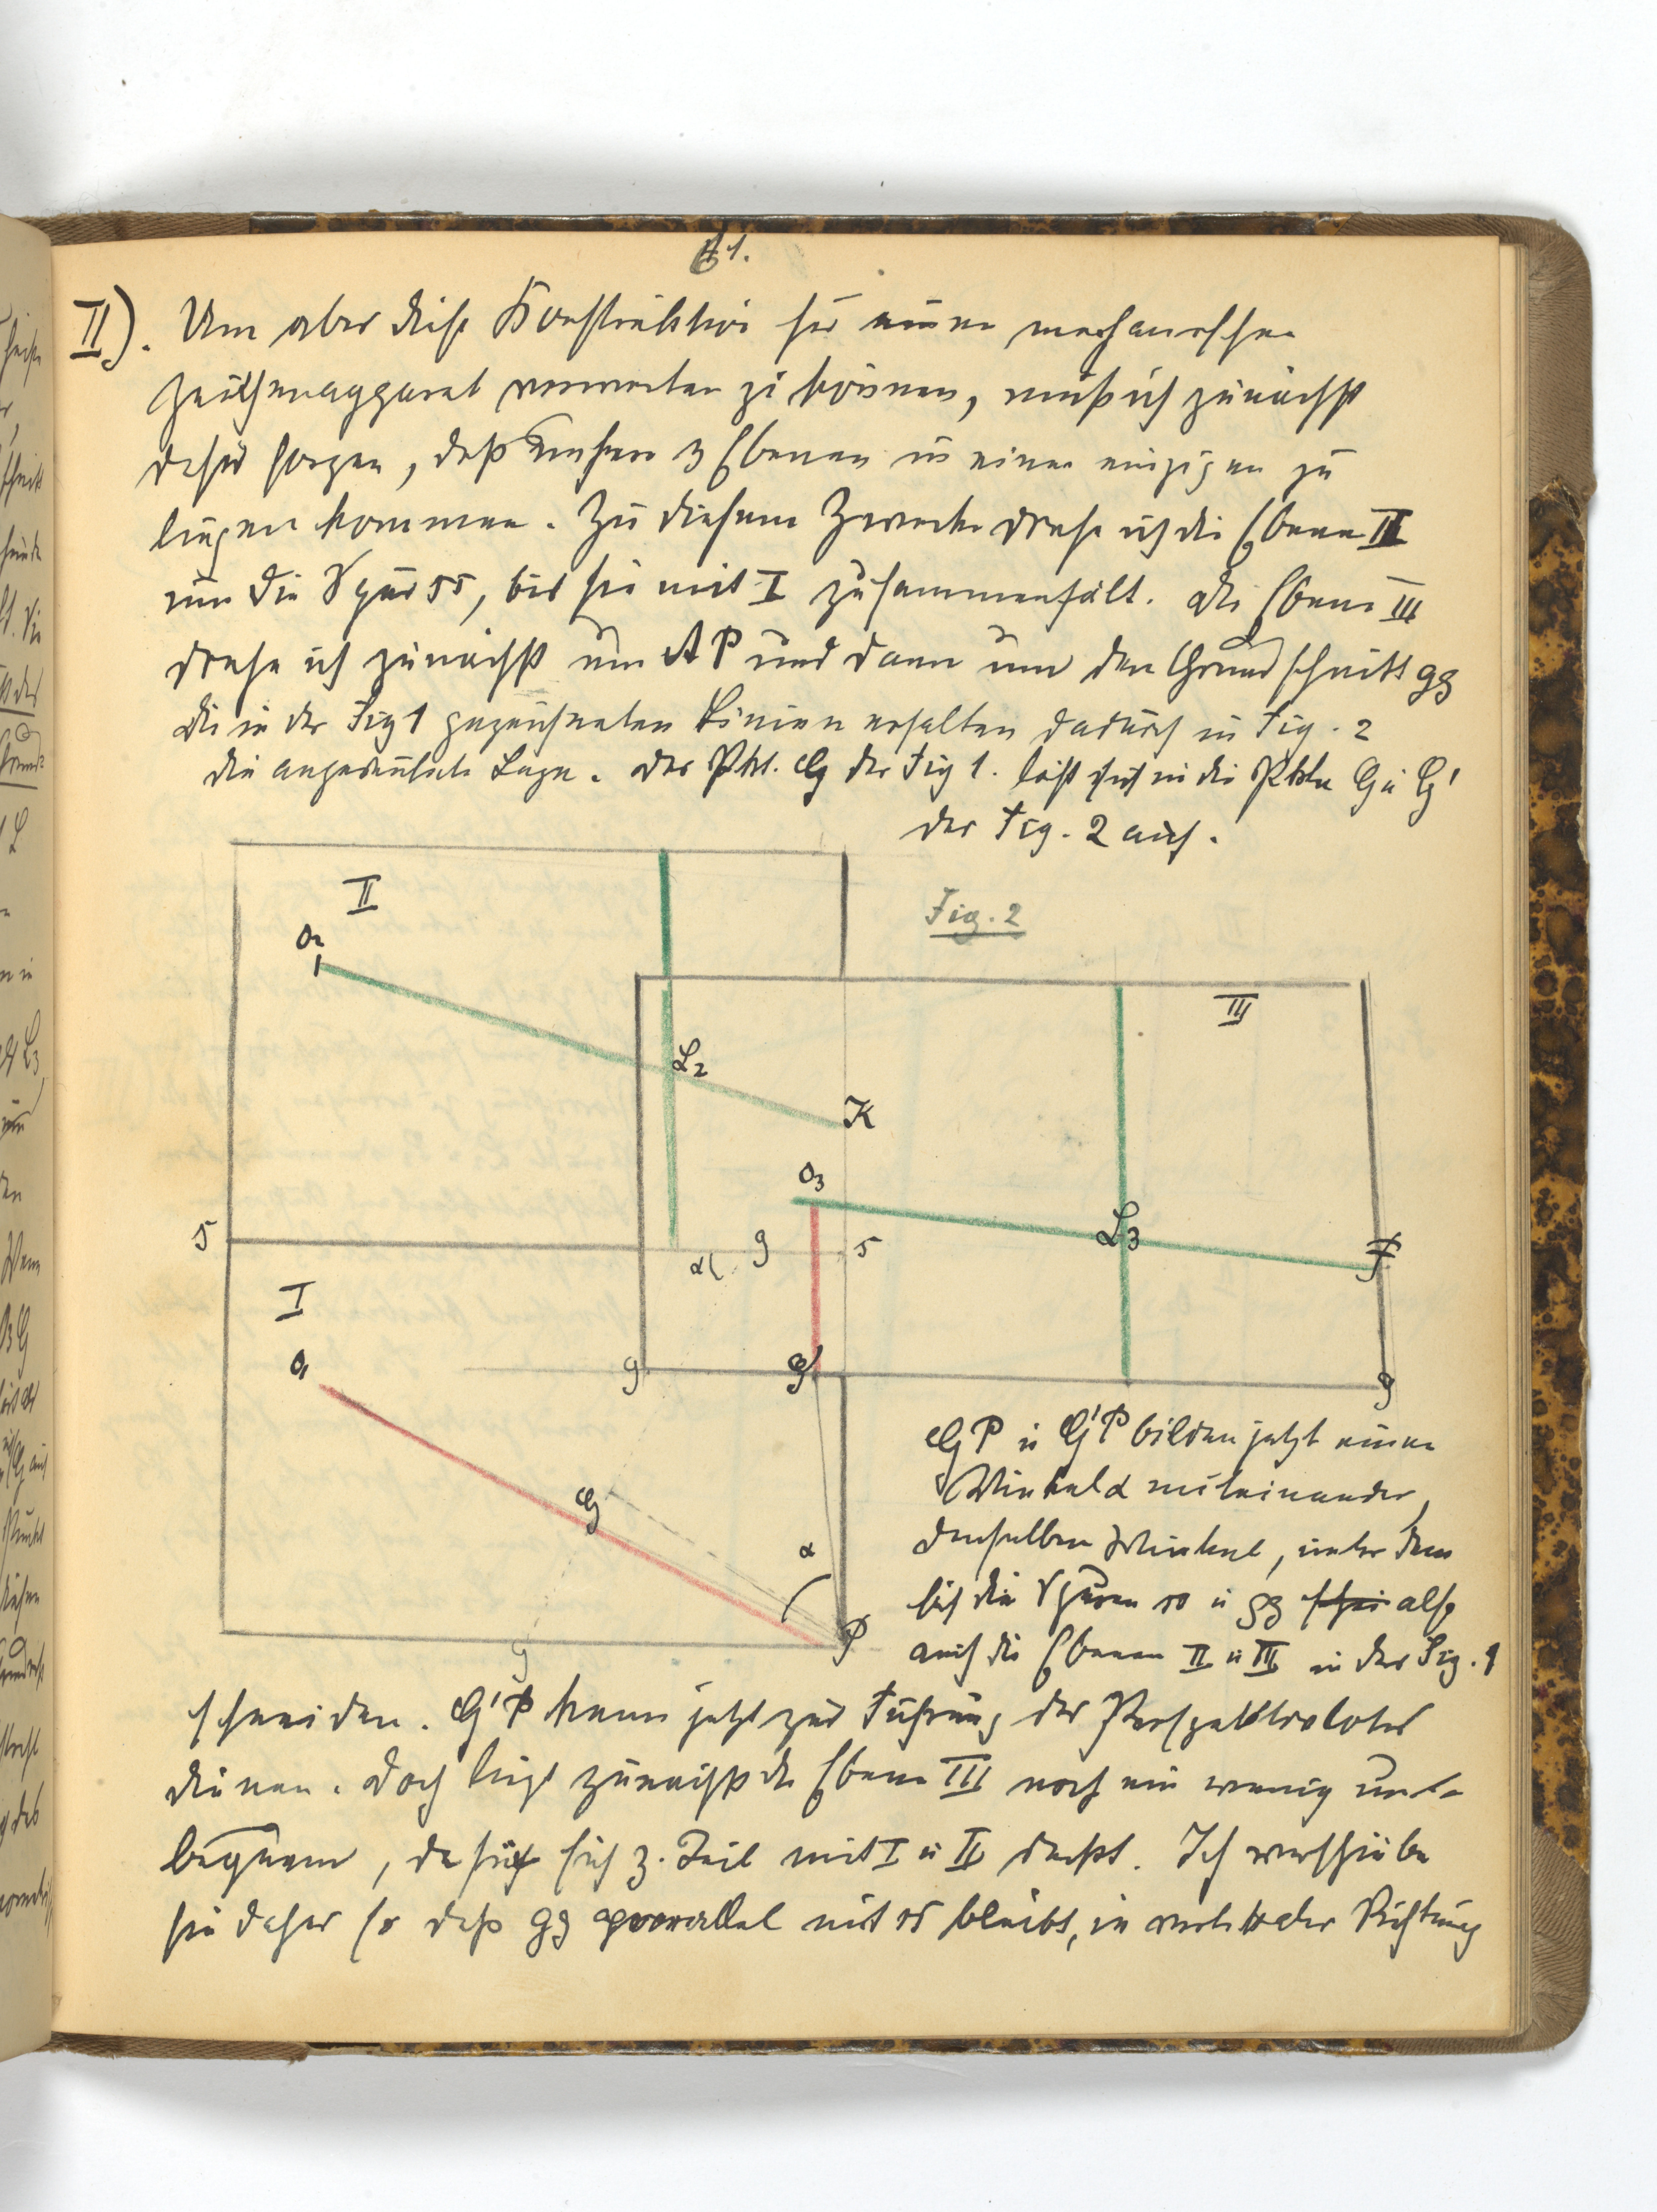 61.
II). Um aber diese Konstruktion für einen mechanischen
Zeichenapparat verwerten zu können, muß ich zunächst
dafür sorgen, daß unsere 3 Ebenen in einer einzigen zu
liegen kommen. Zu diesem Zwecke drehe ich die Ebene II
um die Spur ss, bis sie mit I zusammenfält. Die Ebene III
drehe ich zunächst um AP und dann um den Grundschnitt gg
Die in der Fig 1 gezeichneten Linien erhalten dadurch in Fig. 2
die angedeutete Lage. Der Pkt. G der Fig 1. löst sich in die Pkte G u G'
der Fig. 2 auf.
Fig. 2
II
O2
III
L2
K
O3
L3
F
s
α
g
s
I
O1
g
G'
g
G
α
P
g
GP u G'P bilden jetzt einen
Winkel α miteinander,
denselben Winkel, unter dem
sich die Spuren ss u gg also
auch die Ebenen II u III in der Fig. 1
schneiden. G'P kann jetzt zur Führung des Perspektivlotes
dienen. Doch liegt zunächst die Ebene III noch ein wenig un-
bequem, da sie sich z. Teil mit I u II deckt. Ich verschiebe
sie daher so daß gg parallel mit ss bleibt, in vertikaler Richtung